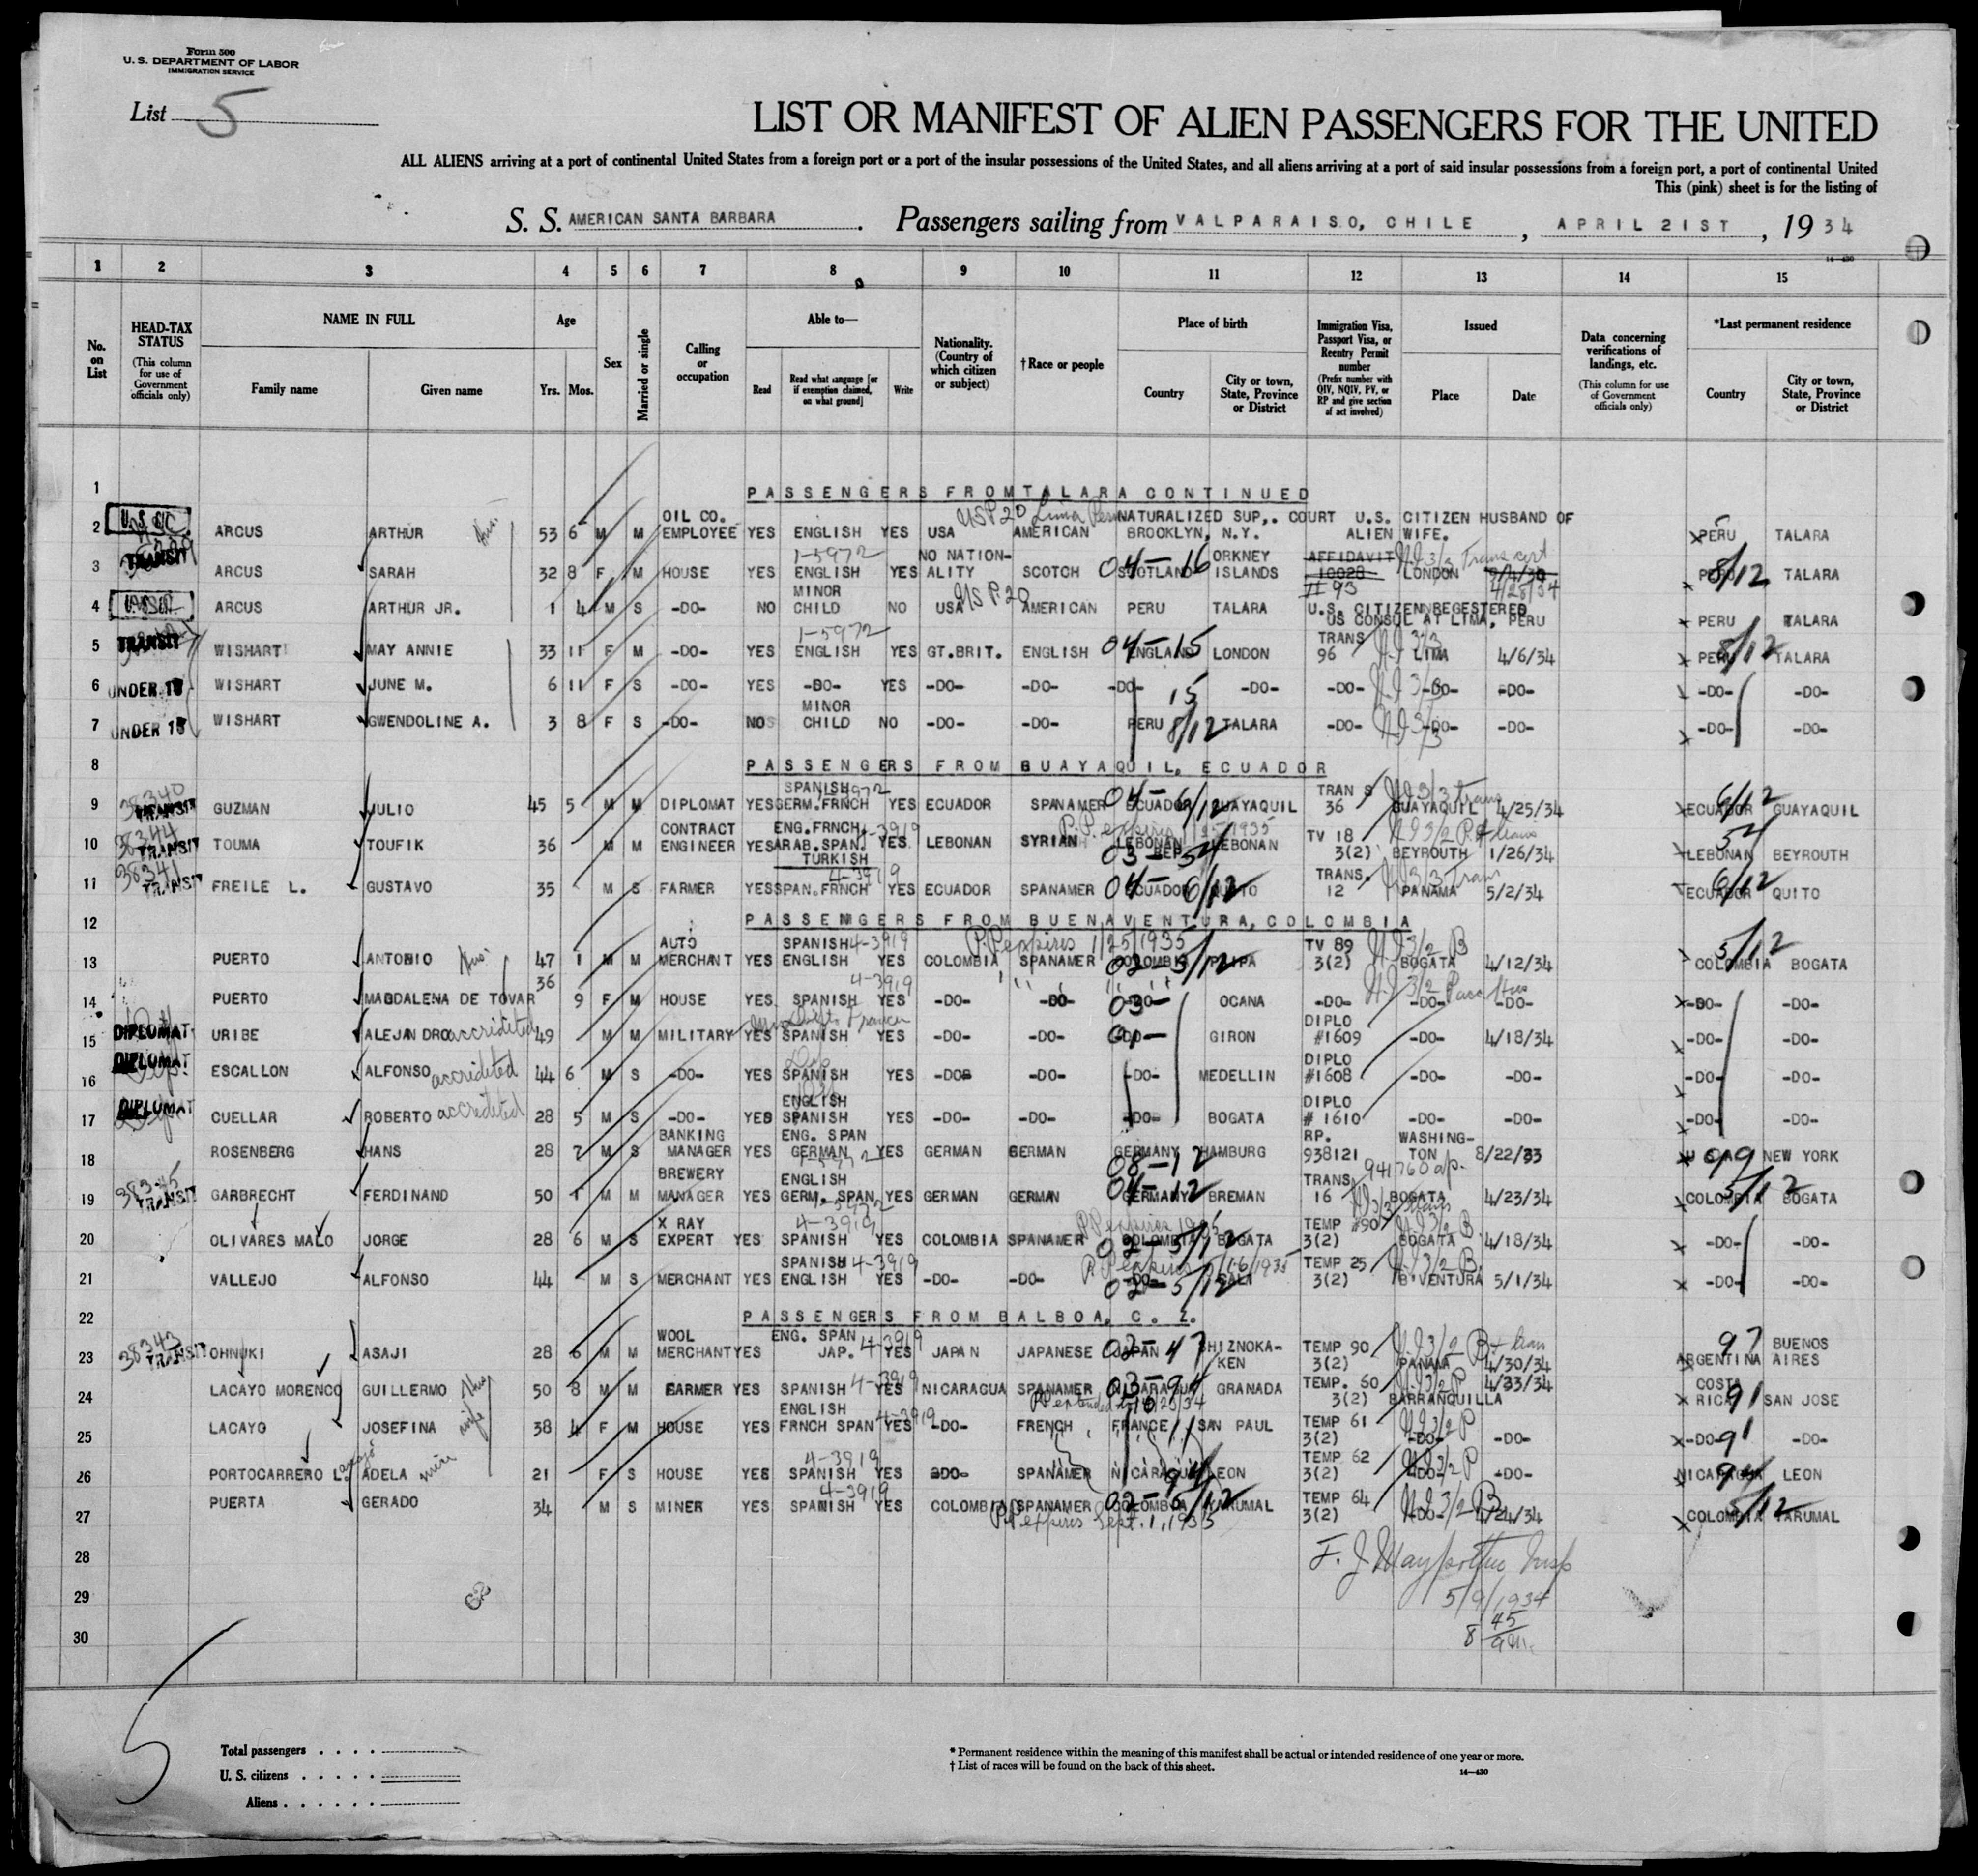 Form 500
U. S. DEPARTMENT OF LABOR
IMMIGRATION SERVICE
List 5
LIST OR MANIFEST OF ALIEN PASSENGERS FOR THE UNITED
ALL ALIENS arriving at a port of continental United States from a foreign port or a port of the insular possessions of the United States, and all aliens arriving at a port of said insular possessions from a foreign port, a port of continental United
This (pink) sheet is for the listing of
S. S. AMERICAN SANTA BARBARA. Passengers sailing from VALPARAISO, CHILE, APRIL 21ST, 1934
14-430
1 2 3 4 5 6 7 8 9 10 11 12 13 14 15
No. on List
HEAD-TAX STATUS (This column for use of Government officials only)
NAME IN FULL Family name Given name
Age Yrs. Mos.
Sex
Married or single
Calling or occupation
Able to— Read Read what language [or if exemption claimed, on what ground] Write
Nationality. (Country of which citizen or subject)
†Race or people
Place of birth Country City or town, State, Province or District
Immigration Visa, Passport Visa, or Reentry Permit number (Prefix number with QIV, NQIV, PV, or RP and give section of act involved)
Issued Place Date
Data concerning verifications of landings, etc. (This column for use of Government officials only)
*Last permanent residence Country City or town, State, Province or District
1 PASSENGERS FROM TALARA CONTINUED
2 ARCUS ARTHUR 53 6 M M OIL CO. EMPLOYEE YES ENGLISH YES USA AMERICAN NATURALIZED SUP,. COURT BROOKLYN, N.Y. U.S. CITIZEN HUSBAND OF ALIEN WIFE. PERU TALARA
3 TRANSIT ARCUS SARAH 32 8 F M HOUSE YES 1-5972 ENGLISH YES NO NATION-ALITY SCOTCH 04-16 SCOTLAND ORKNEY ISLANDS AFFIDAVIT 10028 II 93 LONDON 4/28/34 PERU 8/12 TALARA
4 ARCUS ARTHUR JR. 1 4 M S -DO- NO MINOR CHILD NO USA AMERICAN PERU TALARA U.S. CITIZEN REGESTERED US CONSUL AT LIMA, PERU PERU TALARA
5 TRANSIT WISHART MAY ANNIE 33 11 F M -DO- YES 1-5972 ENGLISH YES GT.BRIT. ENGLISH 04-15 ENGLAND LONDON TRANS 96 LIMA 4/6/34 PERU 8/12 TALARA
6 UNDER 16 WISHART JUNE M. 6 11 F S -DO- YES -DO- YES -DO- -DO- -DO- 15 -DO- -DO- -DO- -DO- -DO- -DO-
7 UNDER 16 WISHART GWENDOLINE A. 3 8 F S -DO- NO MINOR CHILD NO -DO- -DO- PERU 8/12 TALARA -DO- -DO- -DO- -DO- -DO-
8 PASSENGERS FROM GUAYAQUIL, ECUADOR
9 38340 TRANSIT GUZMAN JULIO 45 5 M M DIPLOMAT YES SPANISH GERM.FRNCH YES ECUADOR SPANAMER 04-6/12 ECUADOR GUAYAQUIL TRANS 36 GUAYAQUIL 4/25/34 ECUADOR 6/12 GUAYAQUIL
10 38344 TRANSIT TOUMA TOUFIK 36 M M CONTRACT ENGINEER YES ENG.FRNCH. ARAB.SPAN. TURKISH 4-3919 YES LEBONAN SYRIAN LEBONAN REP. 03-54 LEBONAN TV 18 3(2) BEYROUTH 1/26/34 LEBONAN 54 BEYROUTH
11 38341 TRANSIT FREILE L. GUSTAVO 35 M S FARMER YES 4-3919 SPAN.FRNCH YES ECUADOR SPANAMER 04-6/12 ECUADOR QUITO TRANS. 12 PANAMA 5/2/34 ECUADOR 6/12 QUITO
12 PASSENGERS FROM BUENAVENTURA, COLOMBIA
13 PUERTO ANTONIO 47 1 M M AUTO MERCHANT YES SPANISH 4-3919 ENGLISH YES COLOMBIA SPANAMER P.P. expires 1/25/1935 02-5/12 COLOMBIA TV 89 3(2) BOGATA 4/12/34 COLOMBIA 5/12 BOGATA
14 PUERTO MAGDALENA DE TOVAR 36 9 F M HOUSE YES 4-3919 SPANISH YES -DO- -DO- -DO- 03- OCANA -DO- -DO- -DO- -DO- -DO-
15 DIPLOMAT URIBE ALEJANDRO accridited 49 M M MILITARY YES SPANISH YES -DO- -DO- -DO- GIRON DIPLO #1609 -DO- 4/18/34 -DO- -DO-
16 DIPLOMAT ESCALLON ALFONSO accridited 44 6 M S -DO- YES SPANISH YES -DO- -DO- -DO- MEDELLIN DIPLO #1608 -DO- -DO- -DO- -DO-
17 DIPLOMAT CUELLAR ROBERTO accridited 28 5 M S -DO- YES ENGLISH SPANISH YES -DO- -DO- -DO- BOGATA DIPLO # 1610 -DO- -DO- -DO- -DO-
18 ROSENBERG HANS 28 7 M S BANKING MANAGER YES ENG. SPAN GERMAN YES GERMAN GERMAN GERMANY 08-12 HAMBURG RP. 938121 WASHINGTON 8/22/33 U S A 99 NEW YORK
19 38345 TRANSIT GARBRECHT FERDINAND 50 1 M M BREWERY MANAGER YES ENGLISH GERM. SPAN YES GERMAN GERMAN 04-12 GERMANY BREMAN TRANS 16 BOGATA 4/23/34 COLOMBIA 5/12 BOGATA
20 OLIVARES MALO JORGE 28 6 M S X RAY EXPERT YES 4-3919 SPANISH YES COLOMBIA SPANAMER 02-5/12 COLOMBIA BOGATA TEMP #90 3(2) BOGATA 4/18/34 -DO- -DO-
21 VALLEJO ALFONSO 44 M S MERCHANT YES SPANISH 4-3919 ENGLISH YES -DO- -DO- -DO- 02-5/12 CALI TEMP 25 3(2) B'VENTURA 5/1/34 -DO- -DO-
22 PASSENGERS FROM BALBOA, C. Z.
23 38343 TRANSIT OHNUKI ASAJI 28 6 M M WOOL MERCHANT YES ENG. SPAN JAP. 4-3919 YES JAPAN JAPANESE 03-47 JAPAN SHIZNOKA-KEN TEMP 90 3(2) PANAMA 4/30/34 ARGENTINA 97 BUENOS AIRES
24 LACAYO MORENCO GUILLERMO 50 8 M M FARMER YES SPANISH 4-3919 YES NICARAGUA SPANAMER 03-94 NICARAGUA GRANADA TEMP. 60 3(2) BARRANQUILLA 4/23/34 COSTA RICA 91 SAN JOSE
25 LACAYO JOSEFINA wife 38 4 F M HOUSE YES ENGLISH FRNCH SPAN 4-3919 YES -DO- FRENCH FRANCE SAN PAUL TEMP 61 3(2) -DO- -DO- -DO- 91 -DO-
26 PORTOCARRERO L. ADELA 21 F S HOUSE YES 4-3919 SPANISH YES -DO- SPANAMER NICARAGUA 94 LEON TEMP 62 3(2) -DO- -DO- NICARAGUA 94 LEON
27 PUERTA GERADO 34 M S MINER YES 4-3919 SPANISH YES COLOMBIA SPANAMER 02-5/12 COLOMBIA YARUMAL TEMP 64 3(2) -DO- 4/24/34 COLOMBIA 5/12 YARUMAL
P.P. expires Sept. 1, 1935
28
29 5/9/1934
30 8 45 am.
5
Total passengers
U. S. citizens
Aliens
* Permanent residence within the meaning of this manifest shall be actual or intended residence of one year or more.
† List of races will be found on the back of this sheet.
14-430